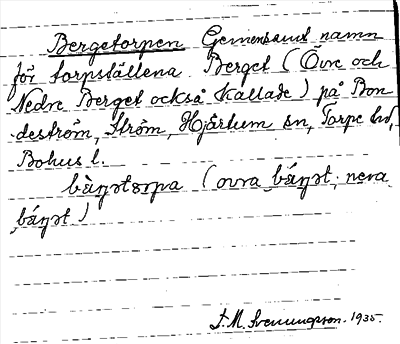 Bergetorpen Gemensamt namn
för torpställena Berget (Övre och
Nedre Berget också kallade) på Bon
deström, Ström, Hjärtum sn, Torpe hd,
Bohus l.
bàŋətɔrpa (øvra báŋət, nera
báŋət)
J. M. Svenungsson. 1935.